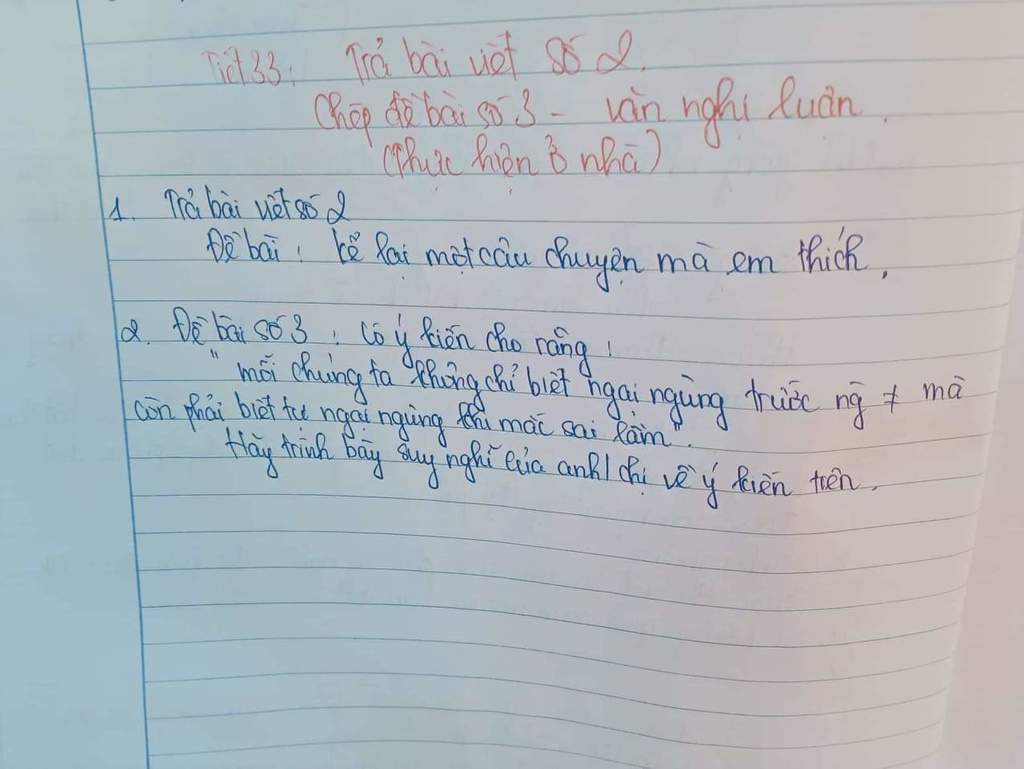 Tiết 33: Trả bài viết số 2.
Chép đề bài số 3 - văn nghị luận.
(Thực hiện ở nhà)
1. Trả bài viết số 2
Đề bài: kể lại một câu chuyện mà em thích.
2. Đề bài số 3: Có ý kiến cho rằng:
"mỗi chúng ta không chỉ biết ngại ngùng trước ng̃ ≠ mà
còn phải biết tự ngại ngùng khi mắc sai lầm".
Hãy trình bày suy nghĩ của anh/chị về ý kiến trên.